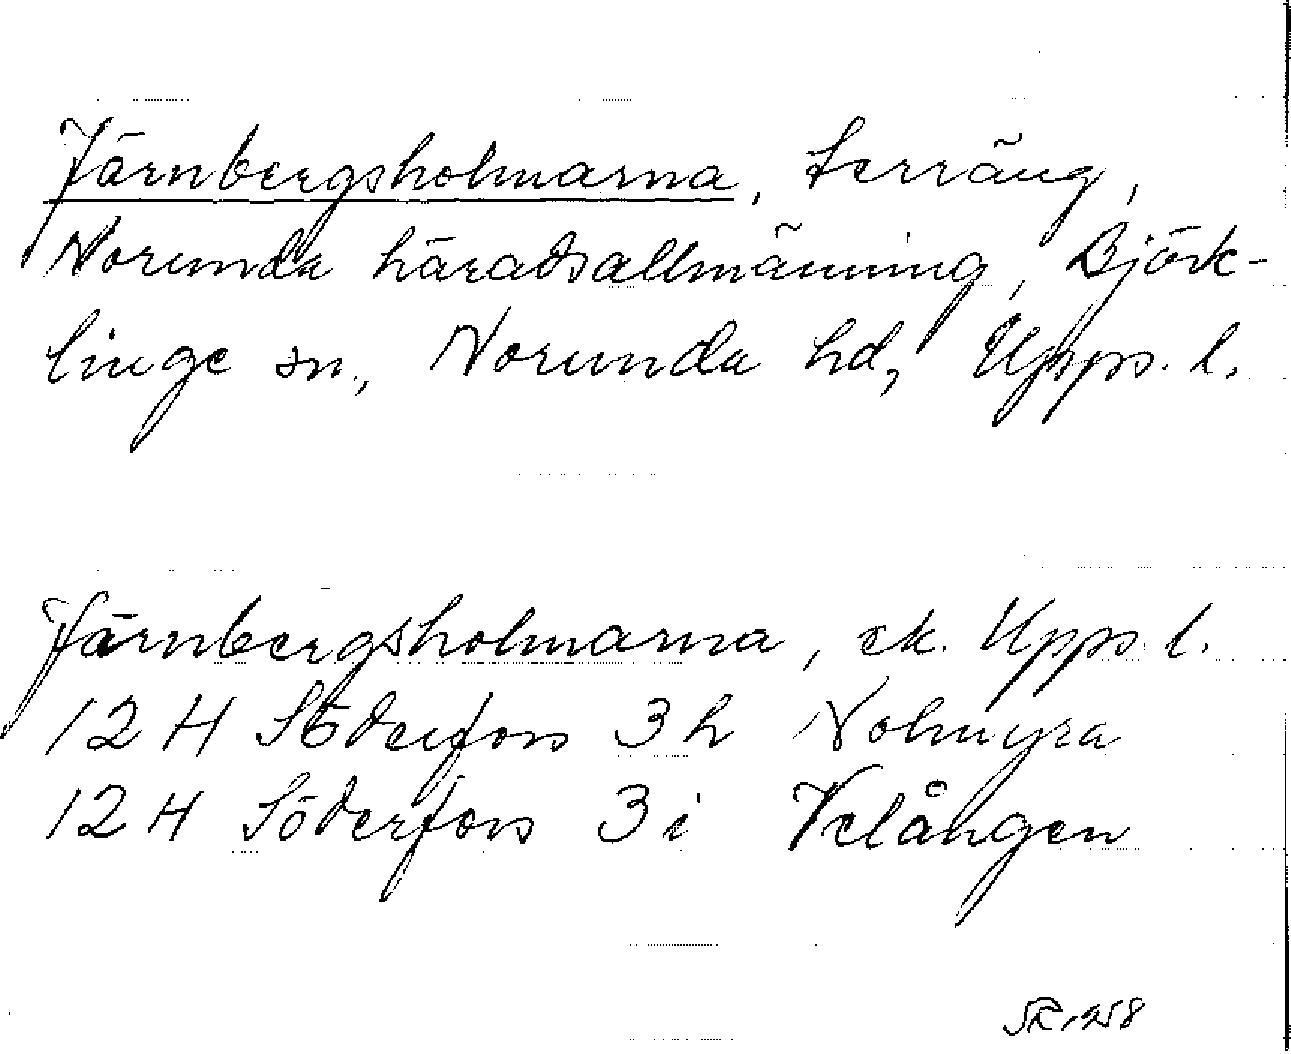 Järnbergsholmarna, terräng,
Norunda häradsallmänning, Björk-
linge sn, Norunda hd, Upps. l.
Järnbergsholmarna, ek. Upps. l.
12 H Söderfors 3 h Nolmyra
12 H Söderfors 3 i Velången